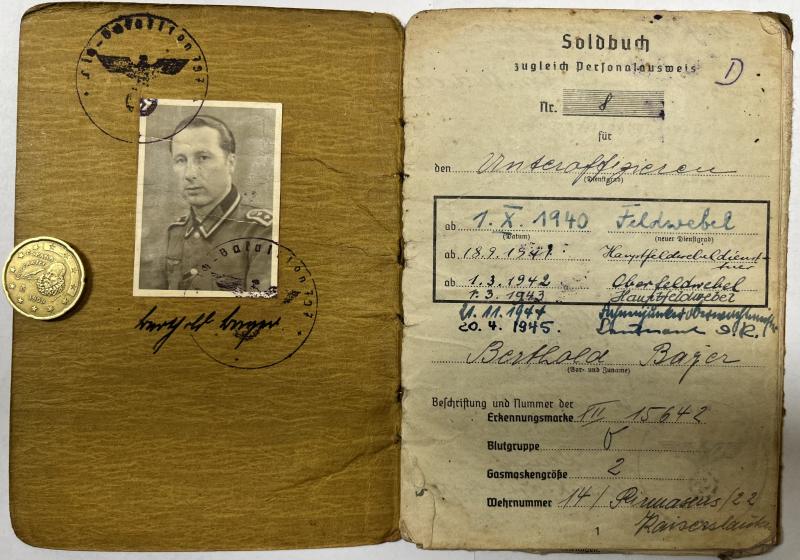 Soldbuch
zugleich Personalausweis
D
Nr. 8
für
den Unteroffizieren
(Dienstgrad)
ab 1. X. 1940 Feldwebel
(Datum) (neuer Dienstgrad)
ab 18.9.1941 Hauptfeldwebeldienst-
tuer
ab 1.3.1942 Oberfeldwebel
1.3.1943 Hauptfeldwebel
21.11.1944
20.4.1945. Leutnant d.R.
Berthold Bayer
(Vor- und Zuname)
Beschriftung und Nummer der
Erkennungsmarke VII 15642
Blutgruppe
Gasmaskengröße 2
Wehrnummer 14/Pirmasens/22
Kaiserslautern
1